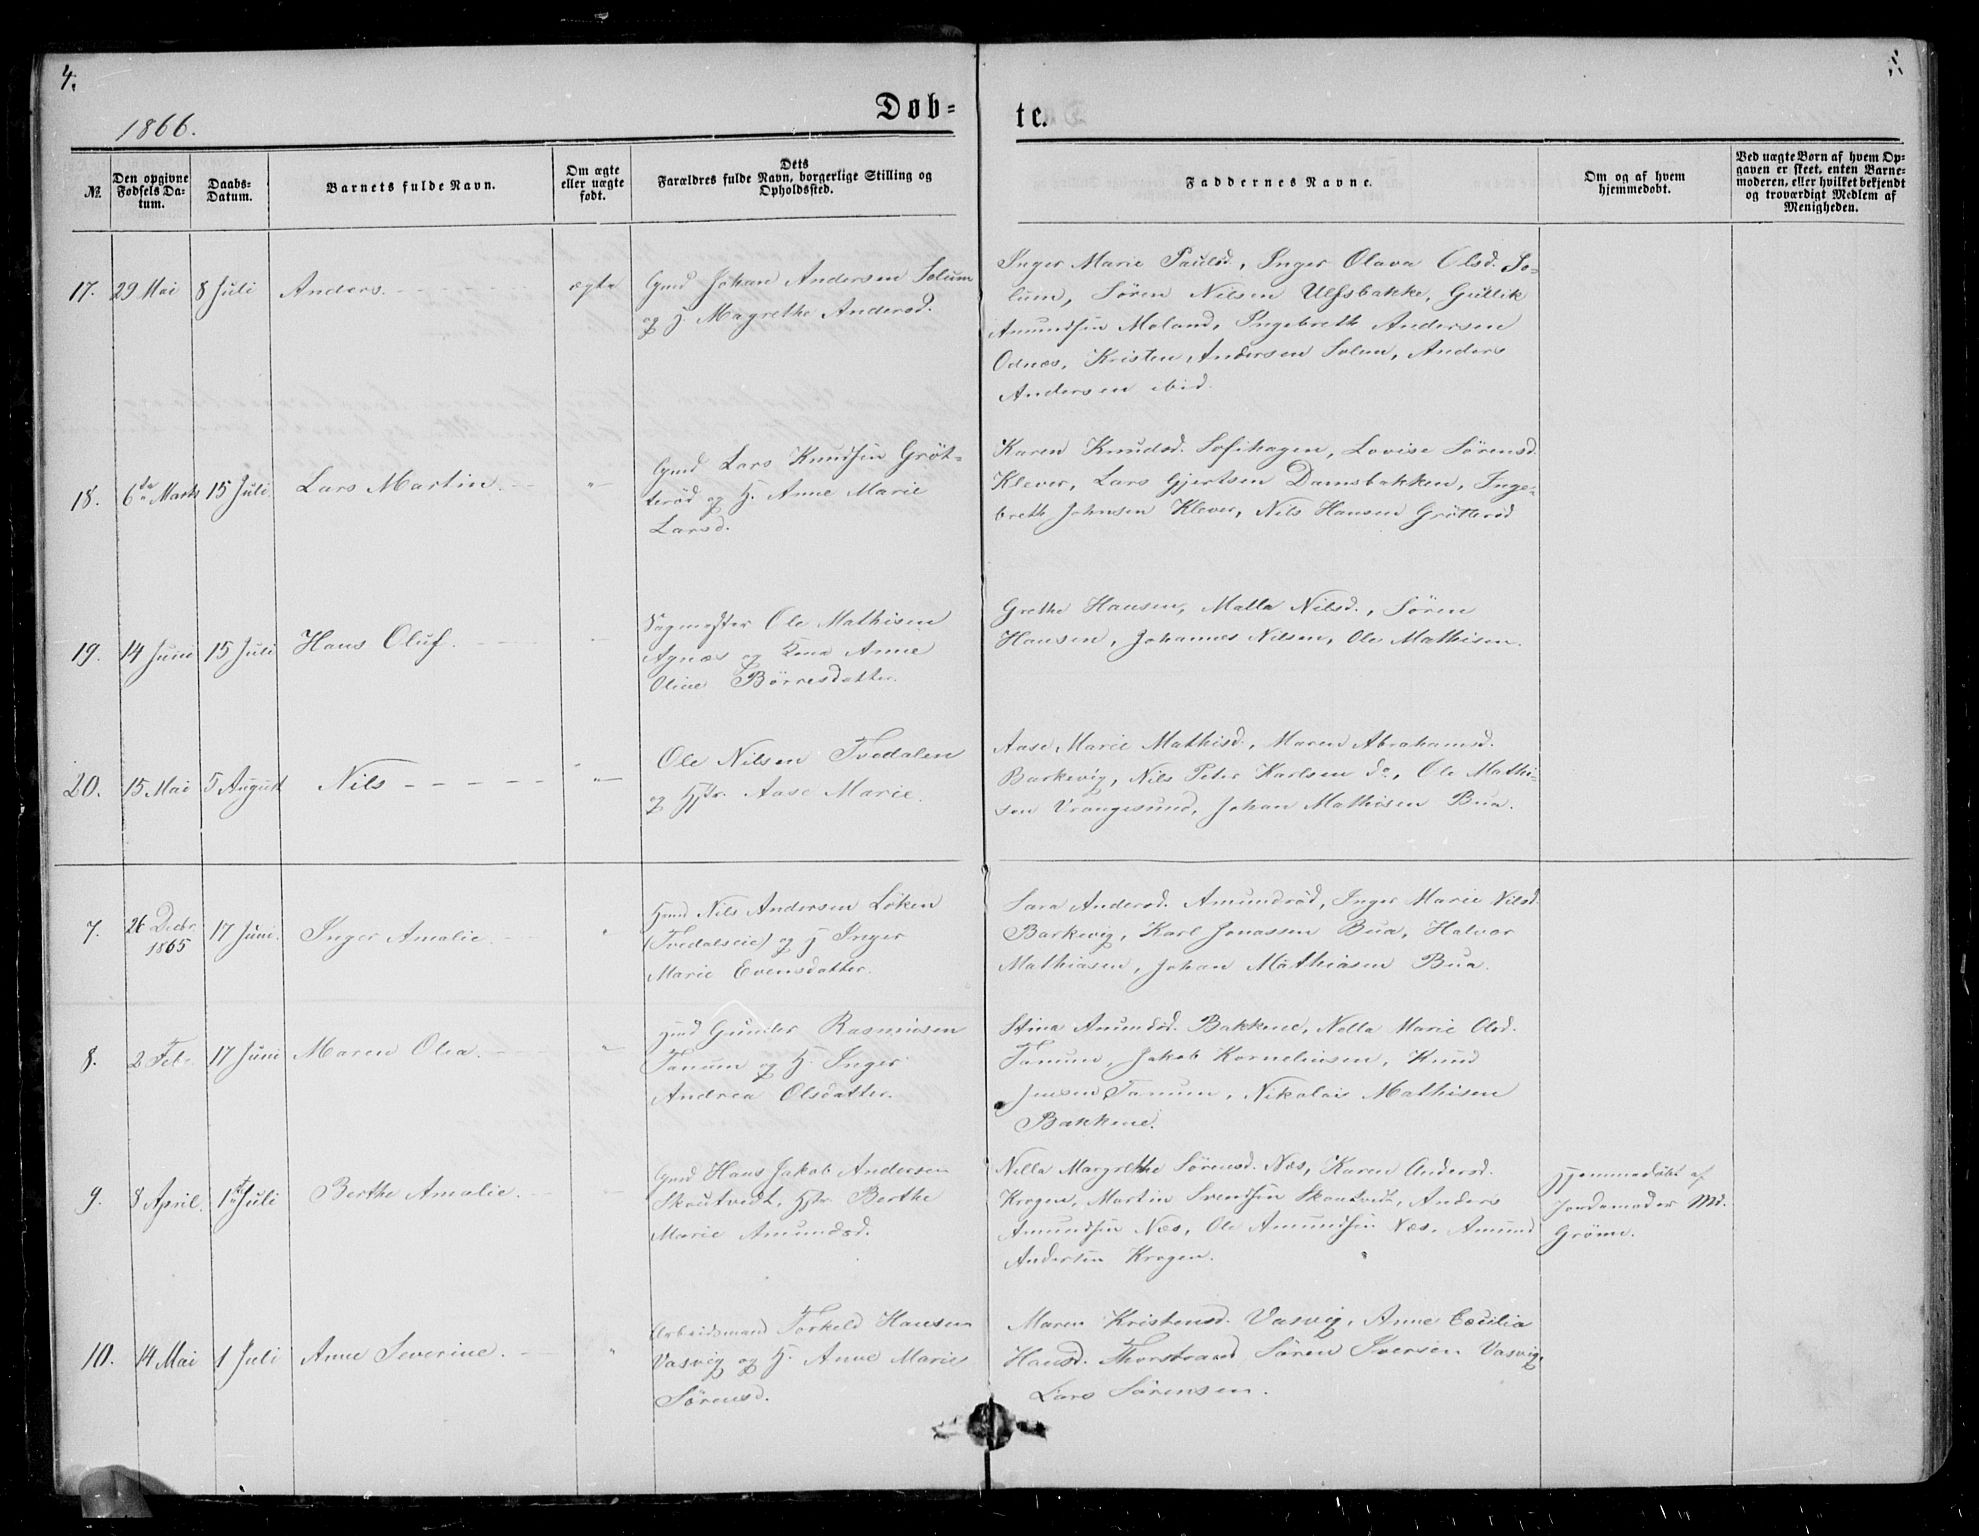 4.
1866.
Døb-
te.
№
Den opgivne
Fødsels Da-
tum.
Daabs-
Datum.
Barnets fulde Navn.
Om ægte
eller uægte
født.
Dets
Forældres fulde Navn, borgerlige Stilling og
Opholdssted.
Faddernes Navne.
Om og af hvem
hjemmedøbt.
Ved uægte Børn af hvem Op-
gaven er skeet, enten Barne-
moderen, eller hvilket bekjendt
og troværdigt Medlem af
Menigheden.
17. 29 Mai 8 Juli Anders. ægte
Gmd Johan Andersen Solum
og H. Magrethe Andersd.
Inger Marie Paulsd, Inger Olava Olsd. So-
lum, Sören Nilsen Ulfsbakke, Gullik
Amundsen Moland, Ingebreth Andersen
Odnæs, Kristen Andersen Solum, Anders
Andersen ibid.
18. 6te Marts 15 Juli Lars Martin. "
Gmd Lars Knudsen Gröt-
teröd og H. Anne Marie
Larsd.
Karen Knudsd. Sofihagen, Lovise Sörensd.
Klever, Lars Gjertsen Damsbakken, Inge-
breth Johnsen Klever, Nils Hansen Grötteröd
19. 14 Juni 15 Juli Hans Oluf.
Sagmester Ole Mathisen
Agnæs og Kona Anne
Oline Börresdatter.
Grethe Hansen, Malla Nilsd., Sören
Hansen, Johannes Nilsen, Ole Mathisen.
20. 15 Mai 5 August Nils "
Ole Nilsen Tvedalen
og Hstr. Aase Marie.
Aase Marie Mathisd., Maren Abrahamsd.
Barkevig, Nils Peter Karlsen do, Ole Mathi-
sen Vrangesund, Johan Mathisen Bua.
7. 26 Decbr 1865 17 Juni. Inger Amalie. "
Hmd Nils Andersen Löken
(Tvedalseie) og H Inger
Marie Evensdatter.
Sara Andersd. Amundröd, Inger Marie Nilsd.
Barkevig, Karl Jonassen Bua, Halvor
Mathiasen, Johan Mathiasen Bua.
8. 2 Feb. 17 Juni Maren Olea. "
Gunder Rasmusen
Tanum og H. Inger
Andrea Olsdatter.
Stina Amundsd. Bakkene, Nella Marie Olsd.
Tanum, Jakob Korneliusen, Knud
Jensen Tanum, Nikolais Mathisen
Bakkene.
9. 8 April. 1ste Juli Berthe Amalie.
Gmd Hans Jakob Andersen
Skoutvedt, Hstr. Berthe
Marie Amundsd.
Nella Margrethe Sörensd. Næs, Karen Andersd.
Krogen, Martin Svendsen Skoutvedt, Anders
Amundsen Næs, Ole Amundsen Næs, Amund
Andersen Krogen.
Hjemmedöbt af
Jordemoder Md.
Gröme.
10. 14 Mai 1 Juli Anne Severine. "
Arbeidsmand Torkeld Hansen
Vasvig og H. Anne Marie
Sörensd.
Maren Kristensd. Vasvig, Anne Cecilia
Hansd. Thorstrand Sören Iversen Vasvig,
Lars Sörensen.